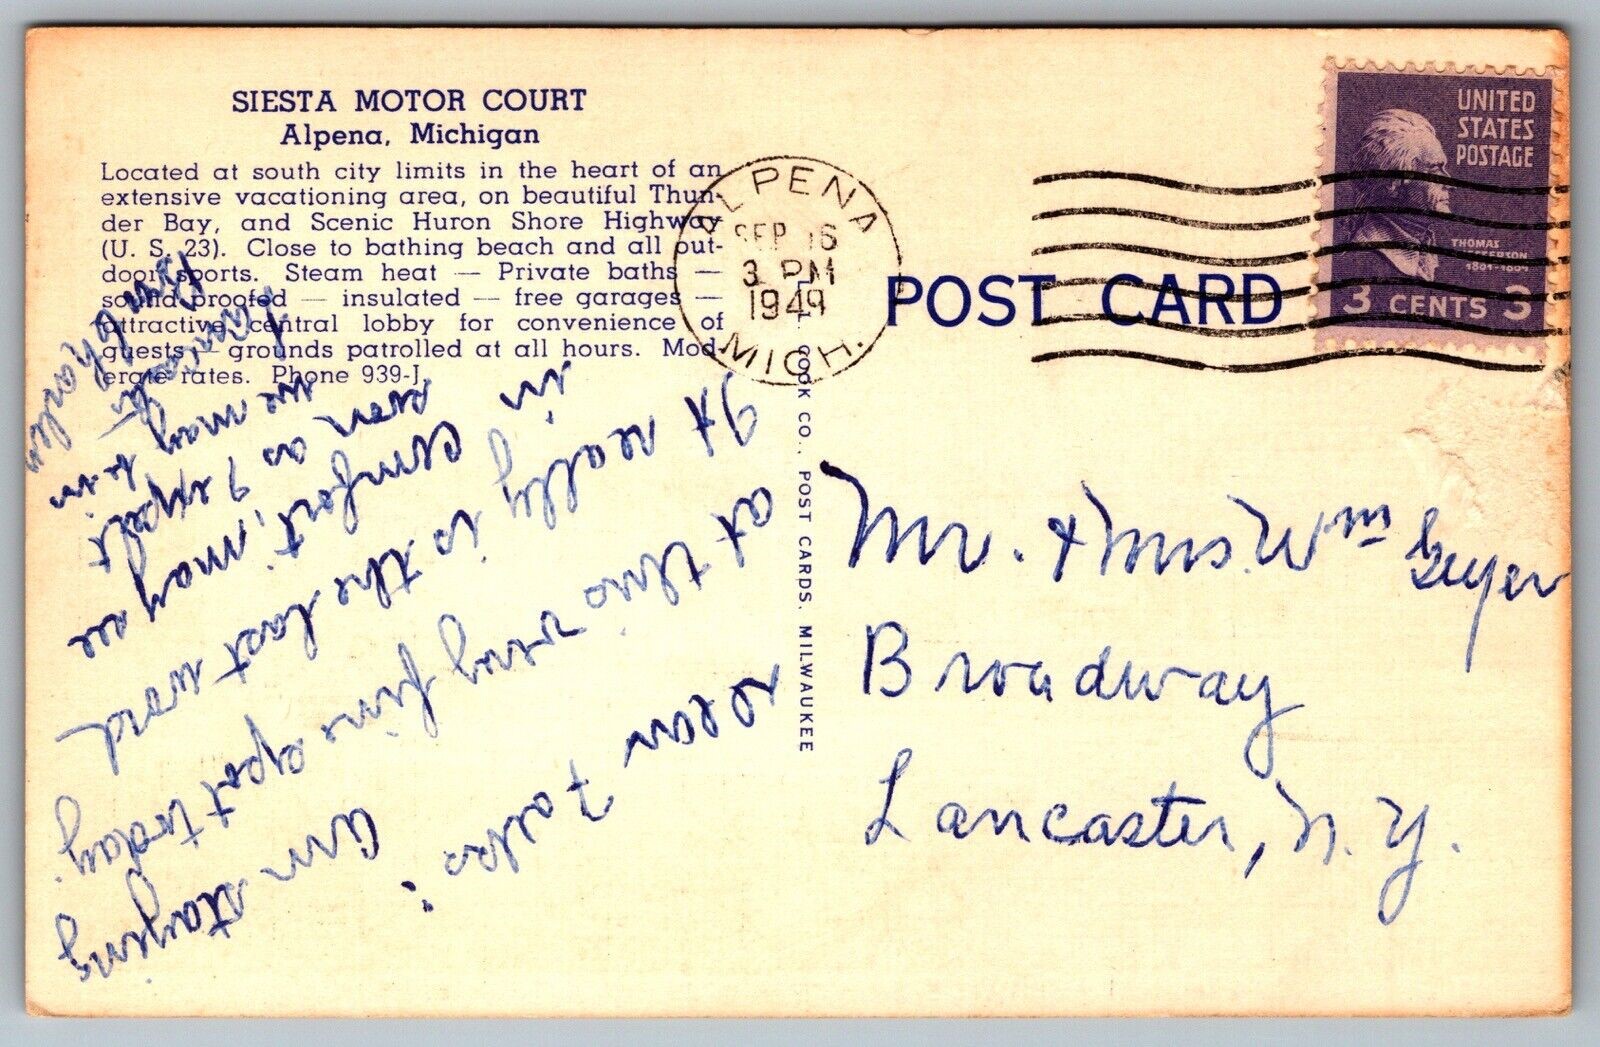 SIESTA MOTOR COURT
Alpena, Michigan
Located at south city limits in the heart of an
extensive vacationing area, on beautiful Thun-
der Bay, and Scenic Huron Shore Highway
(U. S. 23). Close to bathing beach and all out-
door sports. Steam heat — Private baths —
sound proofed — insulated — free garages —
attractive central lobby for convenience of
guests — grounds patrolled at all hours. Mod-
erate rates. Phone 939-J.
ALPENA
SEP 16
3 PM
1949
MICH.
POST CARD
UNITED
STATES
POSTAGE
THOMAS
JEFFERSON
1801-1809
3 CENTS 3
COOK CO., POST CARDS, MILWAUKEE
Mr. & Mrs. Wm Geyer
Broadway
Lancaster, N. Y.
Dear Folks:
Am staying
at this very fine spot today.
It really is the last word
in comfort, may see
even as I expect
we may be in